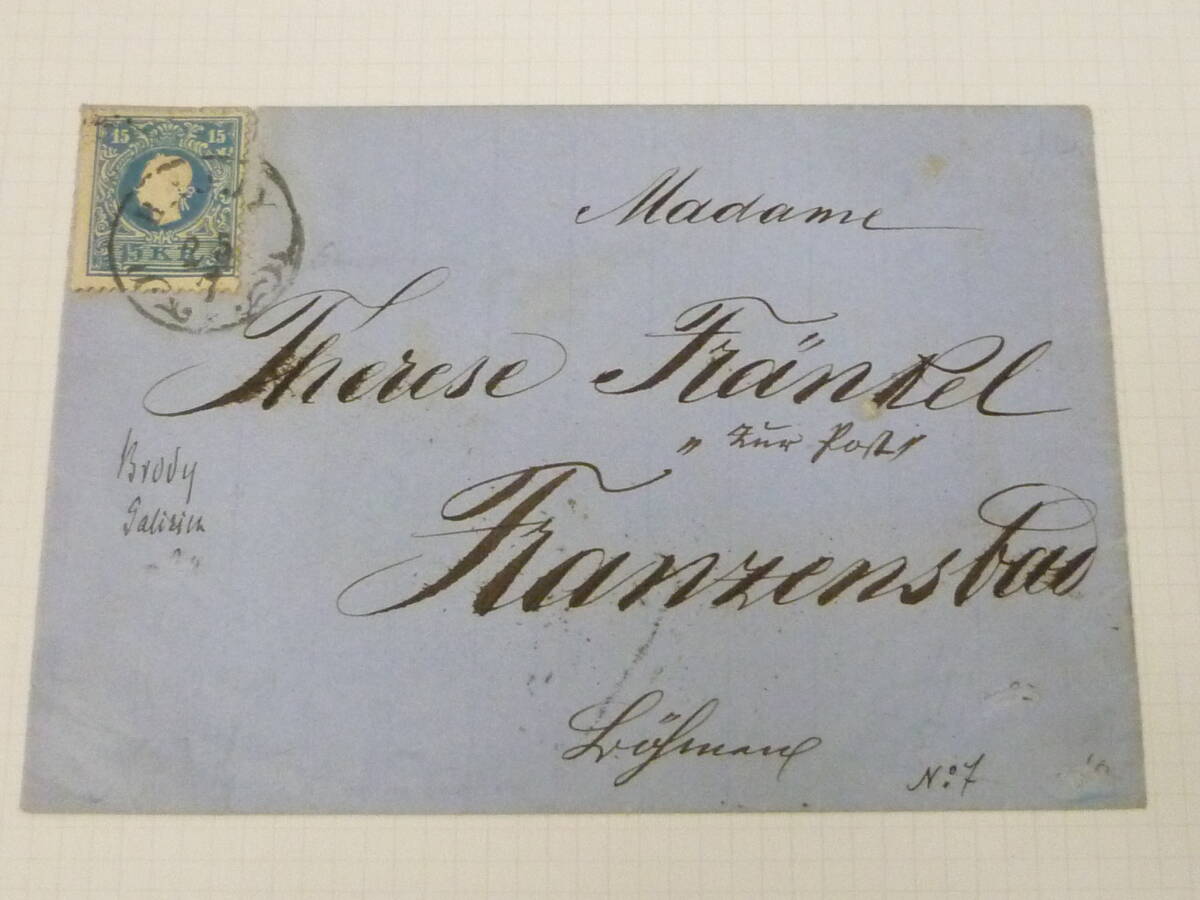 15 15
15 K
Madame
Therese Fränkel
„ Zur Post "
Brody
Galizien
Franzensbad
Böhmen
No: 7